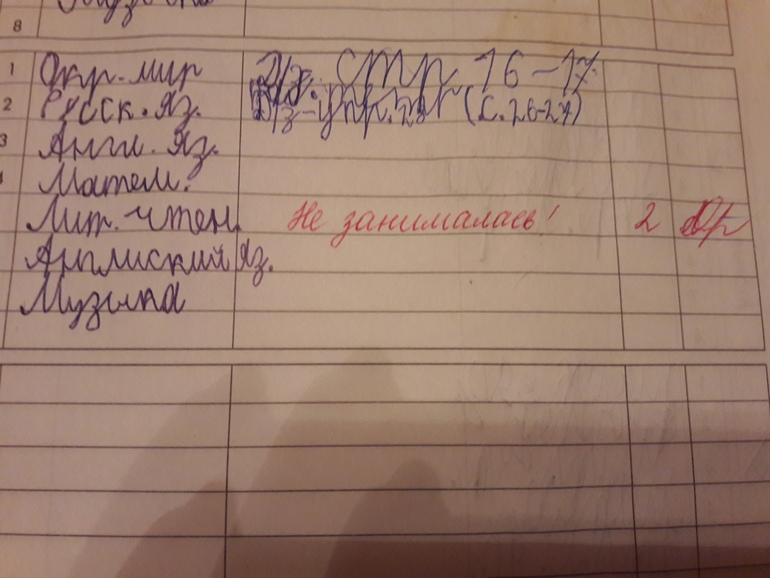 8
1 Окр. мир Д/з. стр. 16-17.
2 Русск. Яз. Д/з-упр.28 (с.26-27)
3 Англ. Яз.
4 Матем.
Лит. чтен. Не занималась! 2
Англиский Яз.
Музыка